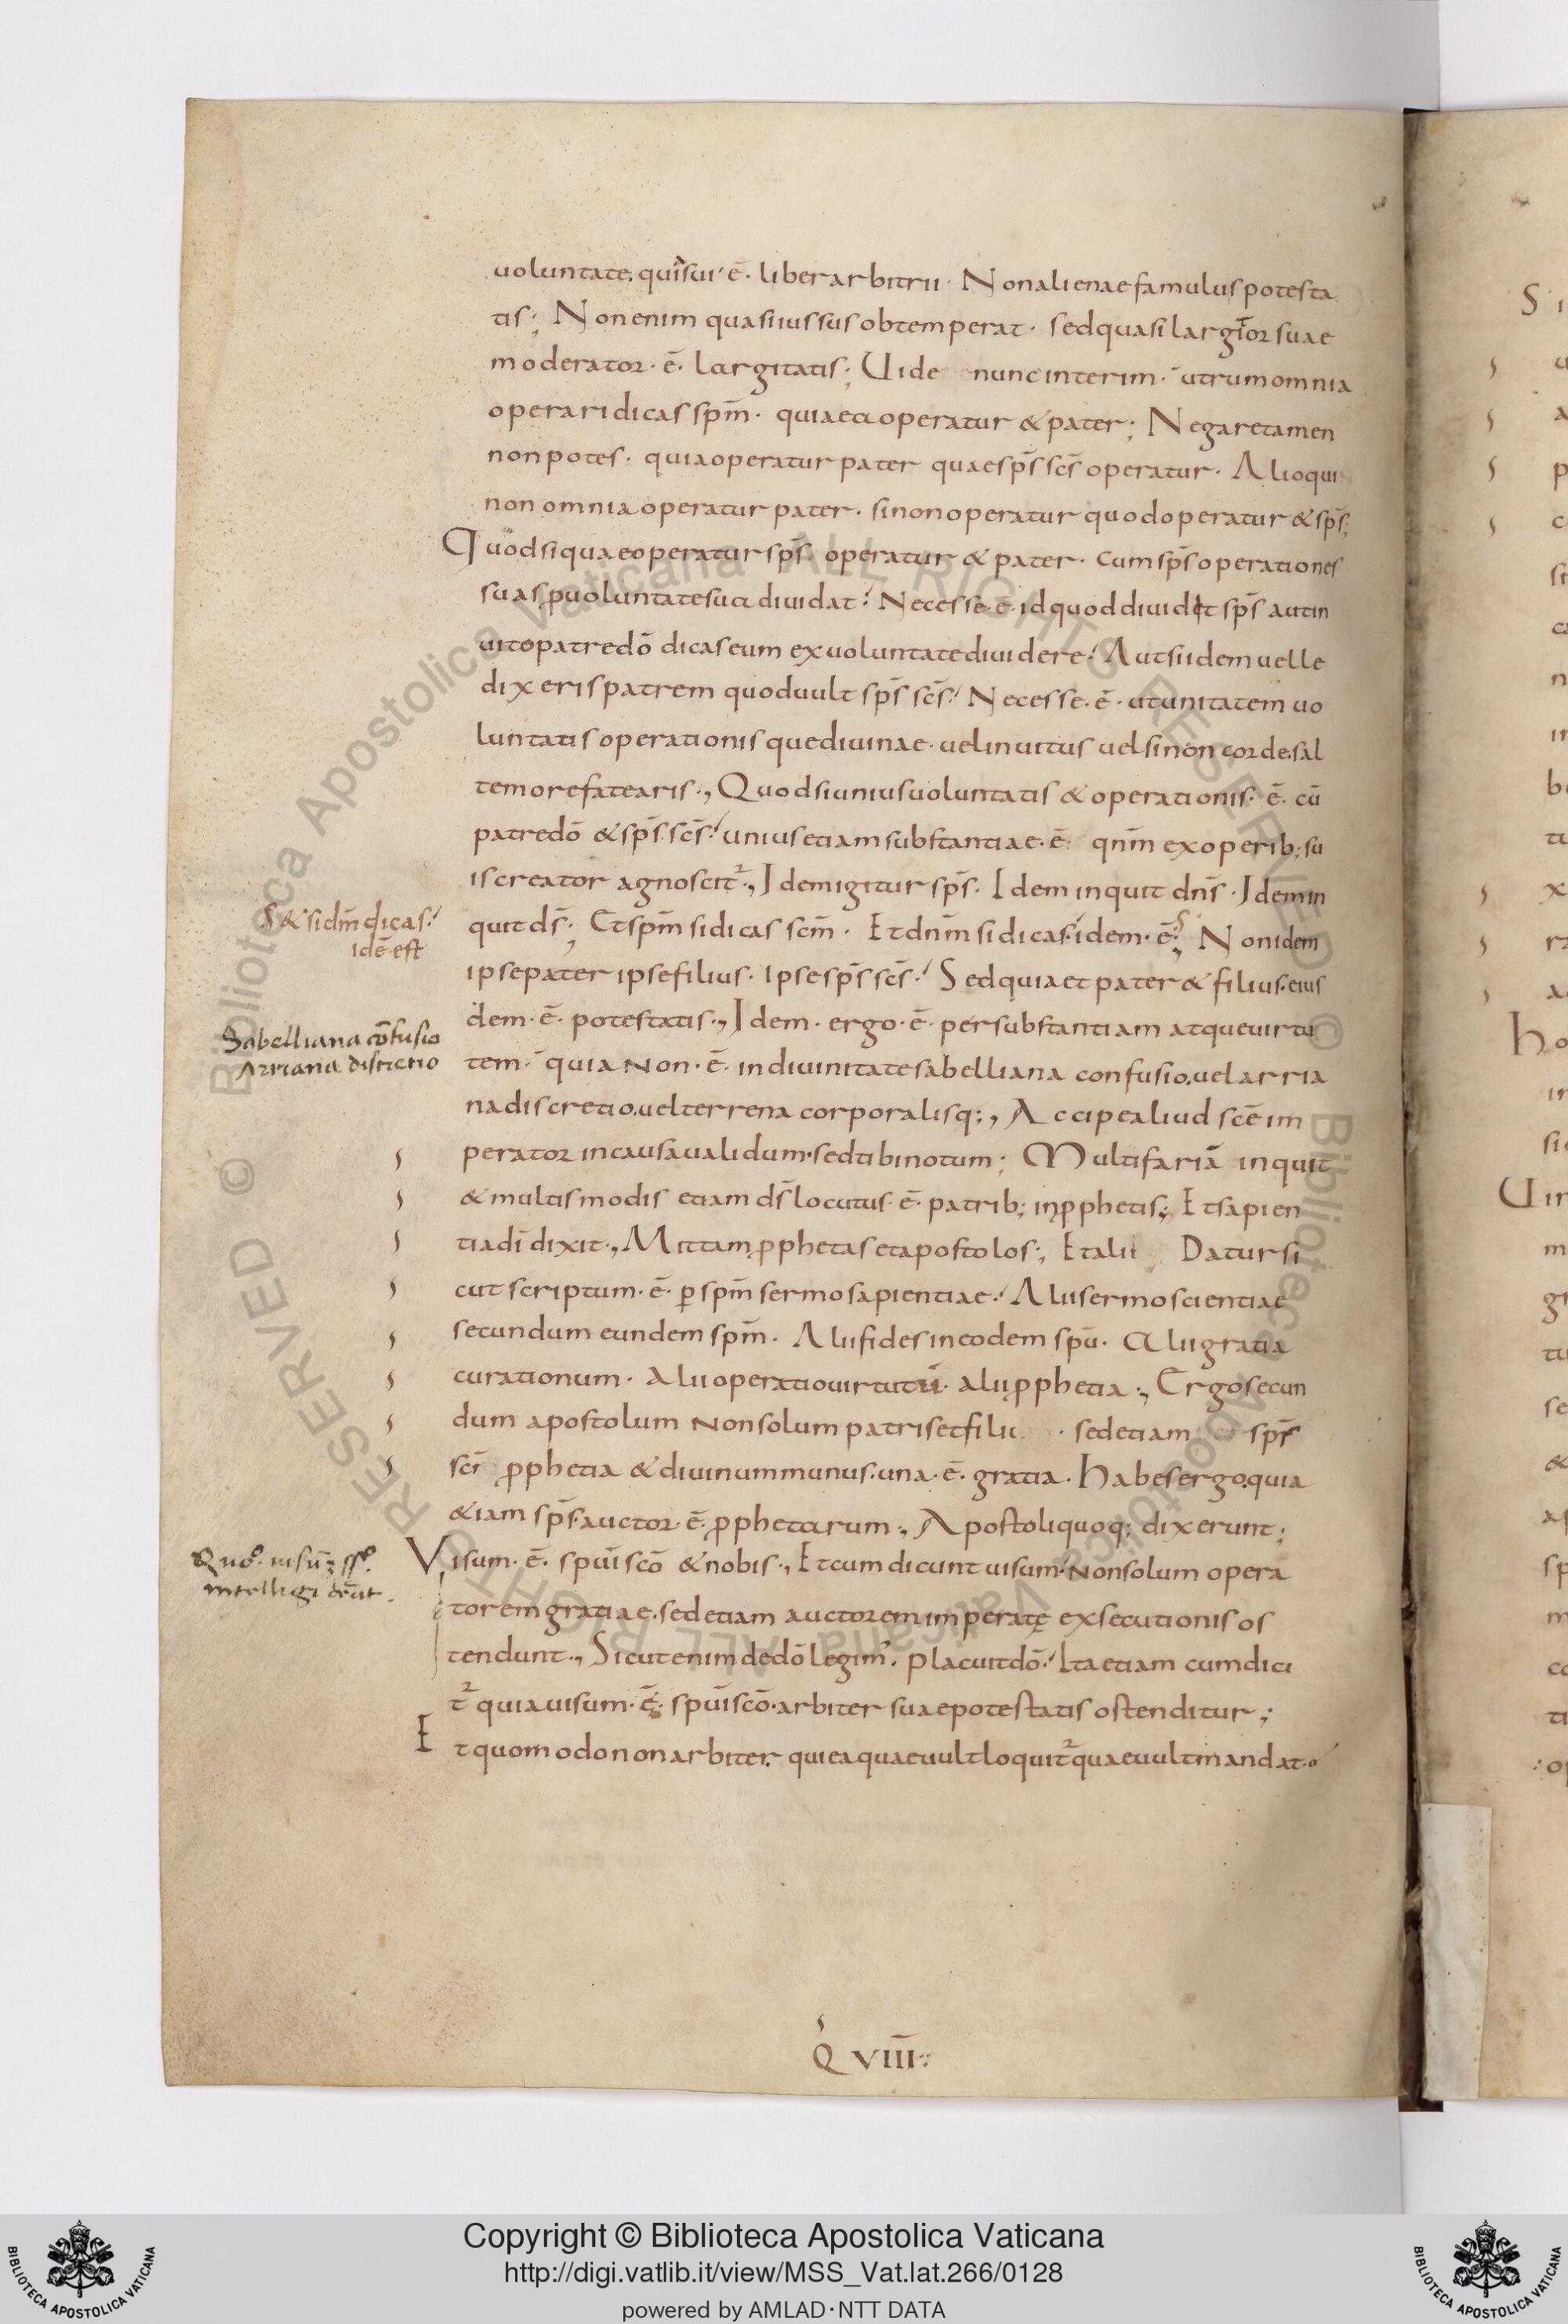 uoluntate. qui sui ē. liber arbitrii. Non alienae famulus potesta
tis; Non enim quasi iussus obtemperat. sed quasi largitor suae
moderator. ē. largitatis; Uide nunc interim. utrum omnia
operari dicas sp̄m. quae a operatur & pater; Negare tamen
non potes. quia operatur pater quae sp̄s sc̄s operatur. Alioqui
non omnia operatur pater. si non operatur quod operatur & sp̄s;
Quod si quae operatur sp̄s operatur & pater. cum sp̄s operationes
suas ꝓ uoluntate sua diuidat. Necesse. ē. id quod diuidit sp̄s aut in
uito patre dō dicas eum ex uoluntate diuidere. Aut si idem uelle
dixeris patrem quod uult sp̄s sc̄s. Necesse. ē. ut unitatem uo
luntatis operationisque diuinae. uel inuitus uel si non corde. sal
tem ore fatearis., Quod si unius uoluntatis & operationis. ē. cū
patre dō & sp̄s sc̄s. unius etiam substantiae. ē. qnm̄ ex operib; su
is creator agnoscit᷑., Idem igitur sp̄s. Idem inquit dn̄s. Idem in
quit ds̄; Et sp̄m si dicas sc̄m. Et dnm̄ si dicas. idem. ē.; Non idem
ipse pater ipse filius. Ipse sp̄s sc̄s. Sed quia et pater & filius. eius
dem. ē. potestatis., Idem. ergo. ē. per substantiam atque uirtu
tem. quia non. ē. in diuinitate sabelliana confusio. uel arria
na discretio. uel terrena corporalisq;., Accipe aliud sc̄e im
perator in causa ualidum. sed tibi notum; Multifariā inquit
& multis modis etiam ds̄ locutus. ē. patrib; in ꝓphetis; Et sapien
tia dī dixit., Mittam ꝓphetas et apostolos;, Et alii Datur si
cut scriptum. ē. ꝑ sp̄m sermo sapientiae. Alii sermo scientiae
secundum eundem sp̄m. Alii fides in eodem spū. Alii gratia
curationum. Alii operatio uirtutū. alii ꝓphetia., Ergo secun
dum apostolum non solum patris et filii. sed etiam sp̄s
sc̄i ꝓphetia & diuinum munus. una. ē. gratia. Habes ergo. quia
&iam sp̄s. auctor. ē. ꝓphetarum., Apostoli quoq; dixerunt;
Visum. ē. spūi scō & nobis., Et cum dicunt uisum. Non solum opera
torem gratiae. sed etiam auctorem imperatę exsecutionis os
tendunt., Sicut enim de dō legim᾿. placuit dō. Ita etiam cum dici
t᷑ quia uisum. ē. spūi scō. arbiter suae potestatis ostenditur;
Et quomodo non arbiter. qui ea quae uult loquit᷑ quae uult mandat.
S & si dnm̄ dicas.
idē est
Sabelliana cōfusio
Arriana discretio
intelligi
Q VIII
Copyright © Biblioteca Apostolica Vaticana
http://digi.vatlib.it/view/MSS_Vat.lat.266/0128
powered by AMLAD·NTT DATA
BIBLIOTECA APOSTOLICA VATICANA
BIBLIOTECA APOSTOLICA VATICANA